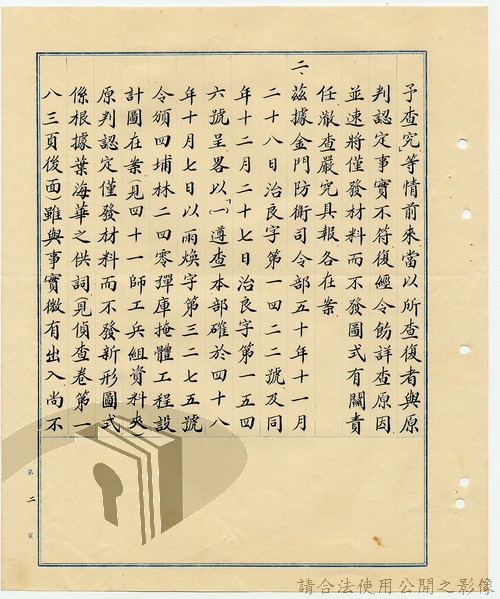 予查究等情前來當以所查復者與原
判認定事實不符復經令飭詳查原因
並速將僅發材料而不發圖式有關責
任澈查嚴究具報各在案
二、茲據金門防衛司令部五十年十一月
二十八日治良字第一四二二號及同
年十二月二十七日治良字第一五四
六號呈畧以「㈠遵查本部確於四十八
年十月七日以雨煥字第三二七五號
令頒四埔林二四零彈庫掩體工程設
計圖在案(見四十一師工兵組資料夾)
原判認定僅發材料而不發新形圖式
係根據葉海華之供詞(見偵查卷第一
八三頁後面)雖與事實微有出入尚不
第二頁
請合法使用公開之影像